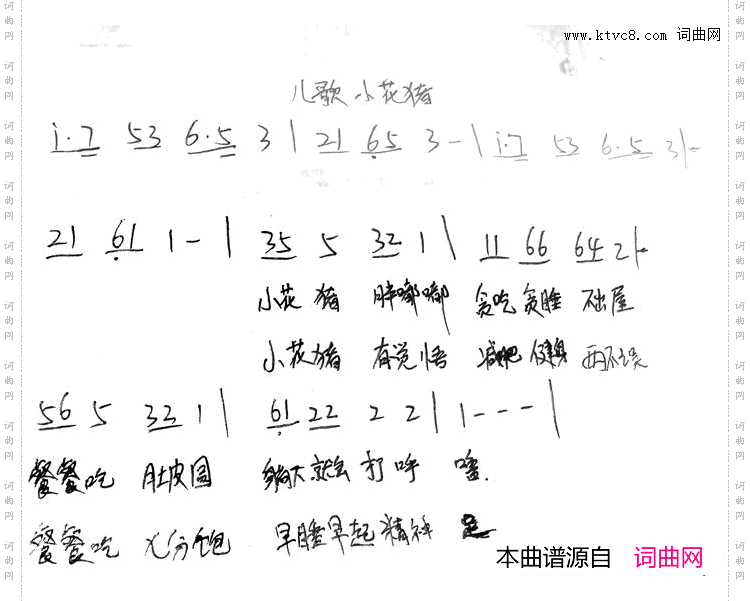 www.ktvc8.com 词曲网
儿歌 小花猪
i·7 53 6·5 3 | 21 65 3 - | i·7 53 6·5 3 | -
21 61 1 - | 35 5 32 1 | 11 66 64 2 | -
小花 猪 胖嘟嘟 贪吃贪睡 不出屋
小花猪 有觉悟 减肥 健身 两不误
56 5 32 1 | 61 22 2 2 | 1 - - - |
餐餐吃 肚皮圆 躺下就会 打呼噜.
餐餐吃 八分饱 早睡早起精神足
本曲谱源自 词曲网
词曲网